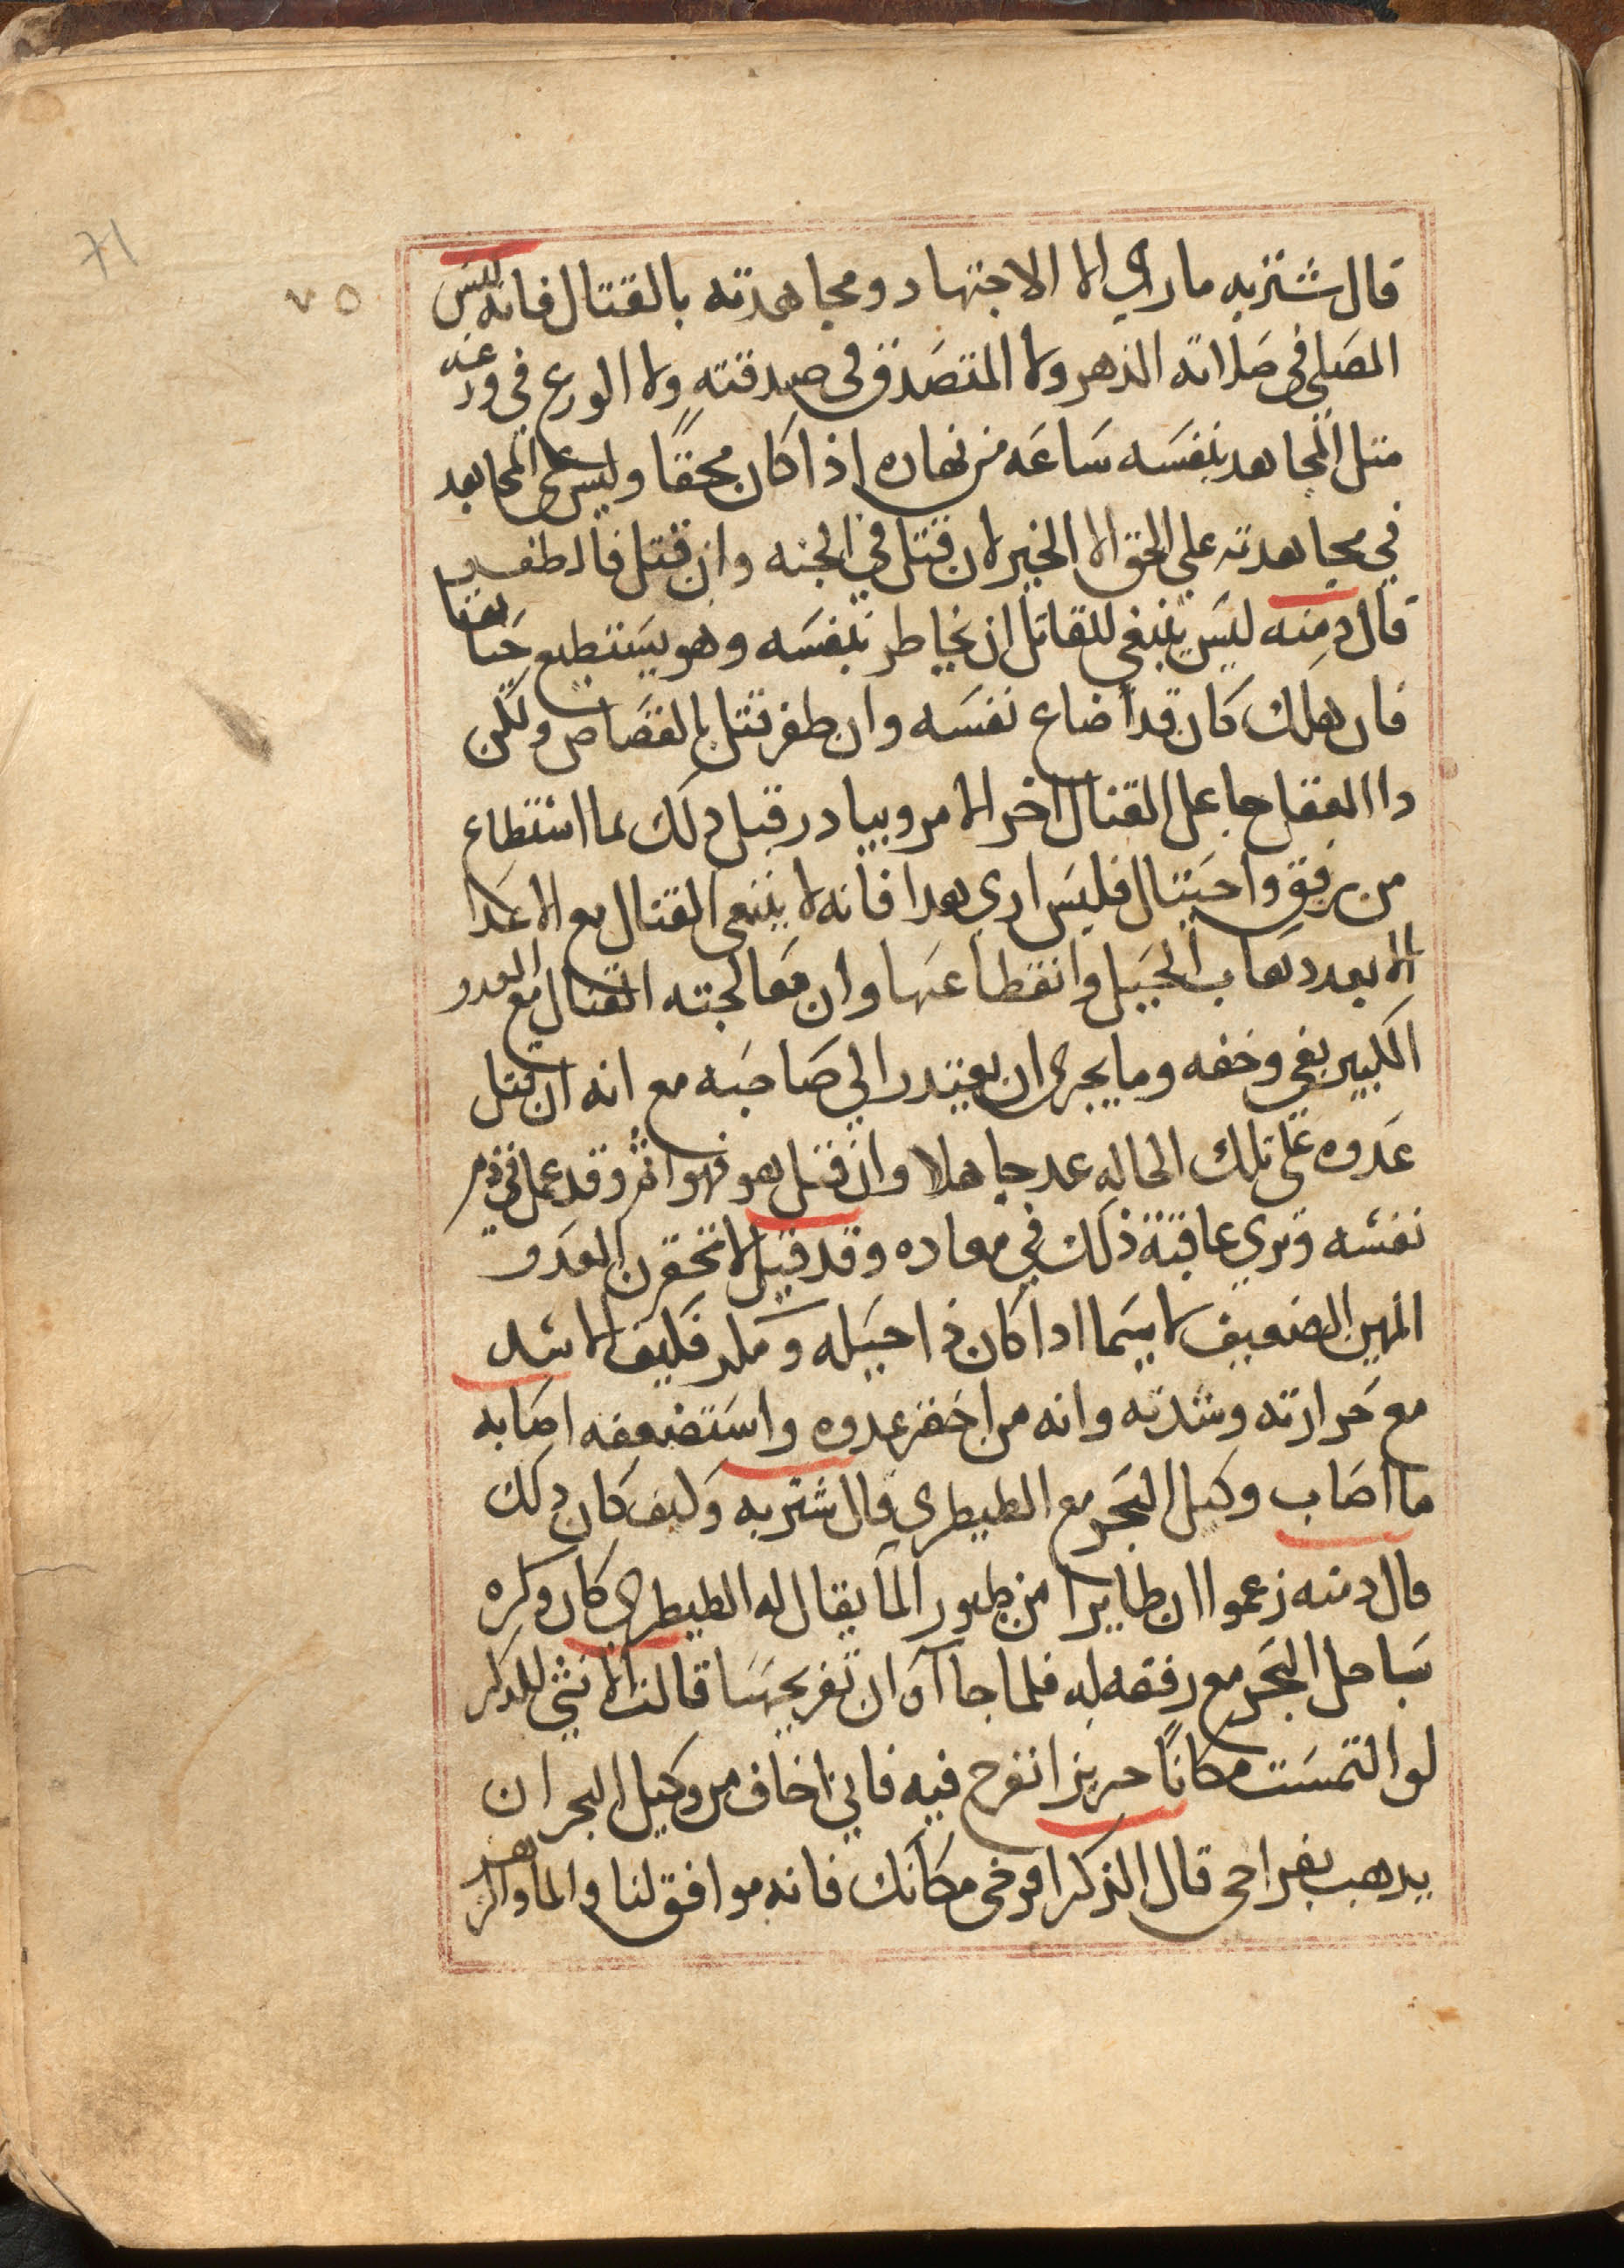 71
٧٥
قال شتربه ما راي الا الاجتهاد ومجاهدته بالقتال فانه ليس
المصلي في صلاته الدهر ولا المتصدق في صدقته ولا الورع في ورعه
مثل المجاهد بنفسه ساعه من نهاره اذا كان محقا وليس علي المجاهد
في مجاهدته علي الحق الا الخير لان قتل في الجنه وان قتل فالظفر
قال دمنه ليس ينبغي للقاتل ان يخاطر بنفسه وهو يستطيع
فان هلك كان قد اضاع نفسه وان ظفر قتل بالقصاص ولكن
دا العقل جاعل القتال اخر الامر ويبادر قبل دلك بما استطاع
من رفق واحتيال فليس اري هدا فانه لا ينبغي القتال مع الاعدا
الا بعد دهاب الحيل وانقطاعها وان معالجته القتال مع العدو
الكبير بغي وخفه وما يجري ان يعتدر الي صاحبه مع انه ان قتل
عدوه علي تلك الحاله عد جاهلا وان قتل هو فهو اثم وقد عمل في دم
نفسه وتري عاقبة ذلك في معاده وقد قيل لا تحقرن العدو
المهين الضعيف لا سيما ادا كان ذا حيله ومكر فكيف الاسد
مع حرارته وشدته وانه من احقر عدوه واستضعفه اصابه
ما اصاب وكيل البحر مع الطيطري قال شتربه وكيف كان دلك
قال دمنه زعموا ان طايرا من طيور الما يقال له الطيطري كان وكره
بساحل البحر مع رفقه له فلما جا آن ان تفريخها قالت الانثي للدكر
لو التمست مكانا حريزا نفرخ فيه فاني اخاف من وكيل البحر ان
يدهب بفراخي قال الذكر افرخي مكانك فانه موافق لنا والما والزهر